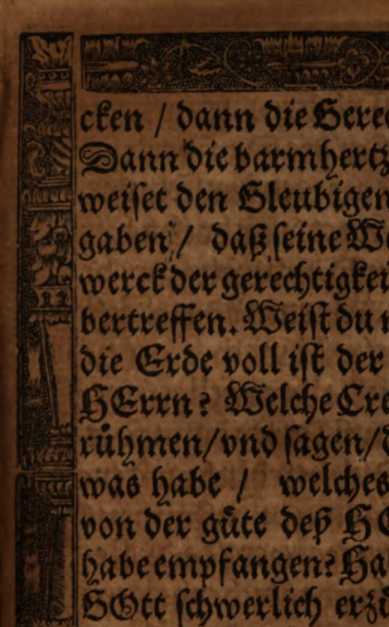 cken / dann die Gerec
Dann die barmhertz
weiset den Gleubigen
gaben / daß seine We
werck der gerechtigkei
bertreffen. Weist du n
die Erde voll ist der
HErrn? Welche Cre
rühmen/vnd sagen/d
was habe / welches
von der güte deß HE
habe empfangen? Ha
GOtt schwerlich erzü